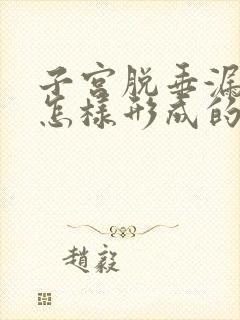 子宫脱垂漏
怎样形成的
趙毅